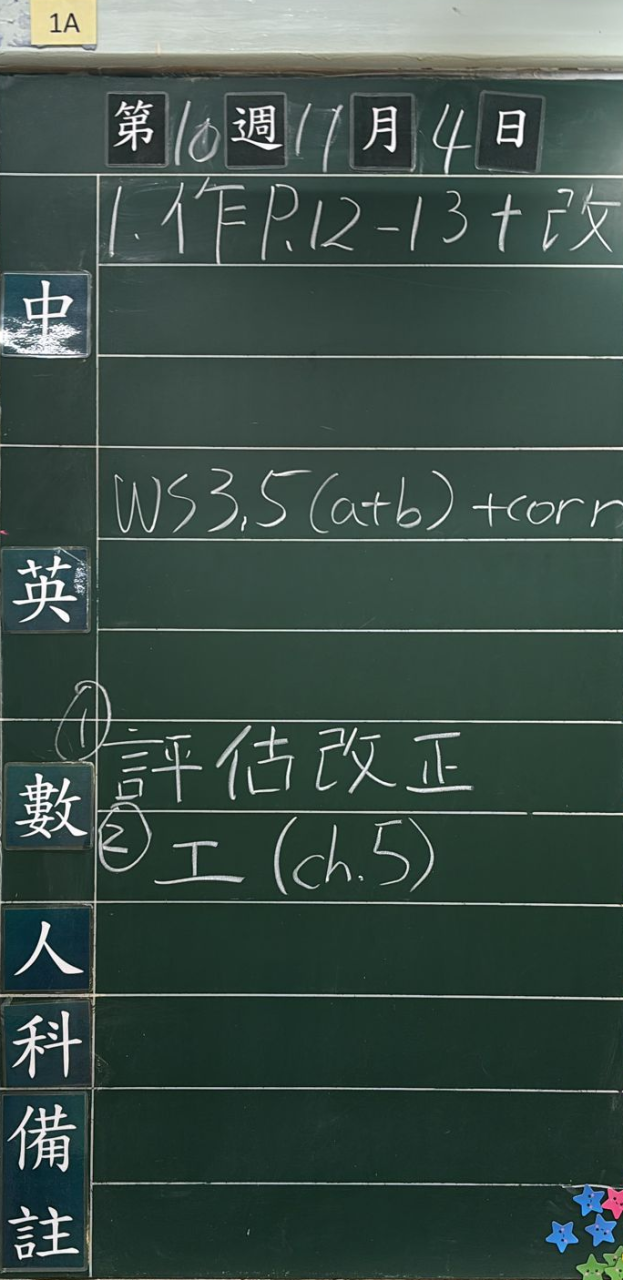 1A
第10週11月4日
1. 作P.12-13+改
中
WS3.5(a+b) +corr
英
① 評估改正
數
② 工(ch.5)
人
科
備
註